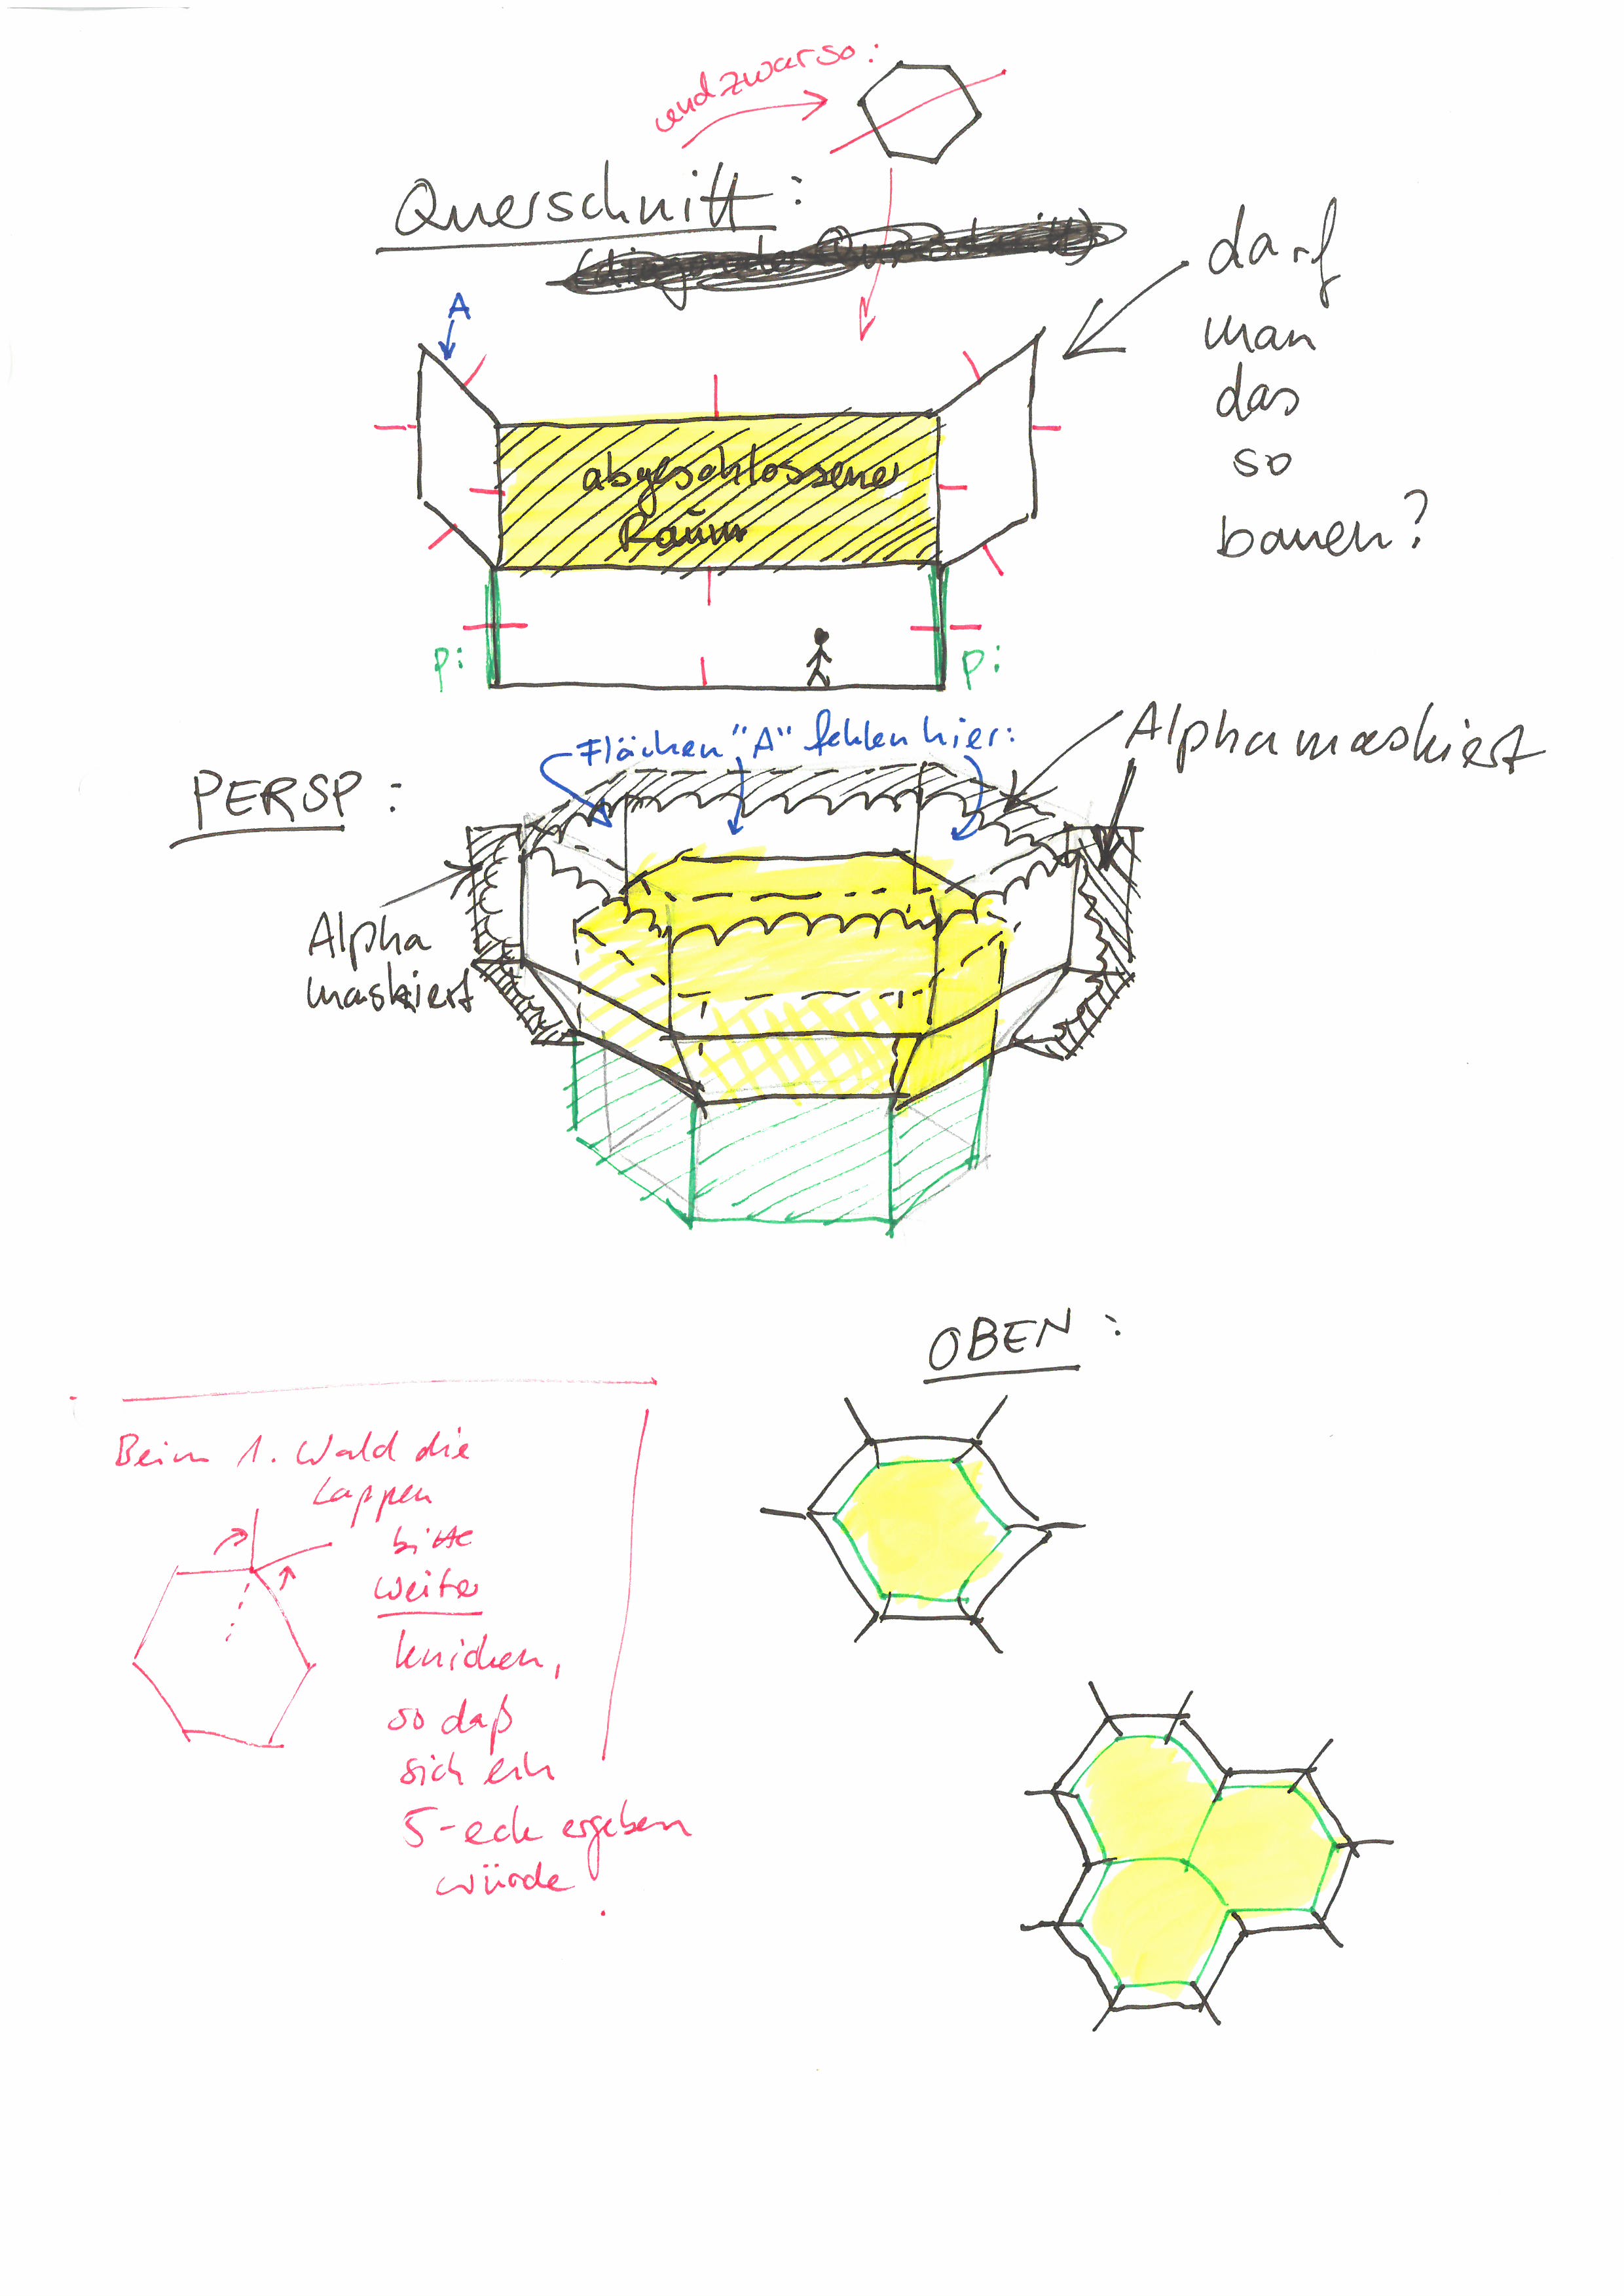 und zwar so:
Querschnitt:
(diagonaler Querschnitt)
darf
man
das
so
bauen?
A
abgeschlossener
Raum
p:
p:
Flächen "A" fehlen hier:
Alphamaskiert
PERSP:
Alpha
maskiert
OBEN:
Beim 1. Wald die
Lappen
bitte
weiter
knicken,
so daß
sich ein
5-eck ergeben
würde.